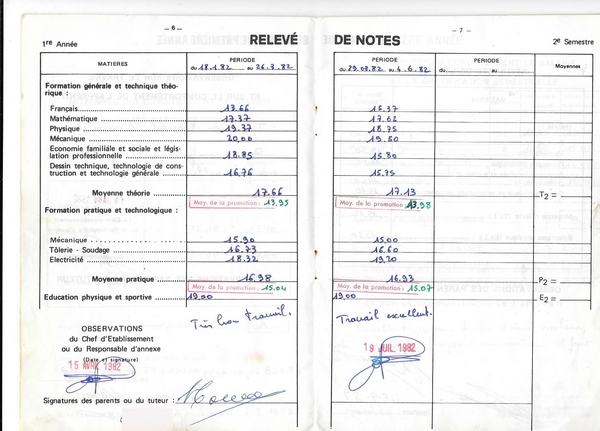 — 6 —
— 7 —
1re Année
RELEVÉ DE NOTES
2e Semestre
MATIERES
PERIODE
du 18.1.82 au 26.3.82
PERIODE
du 29.03.82 au 4.6.82
PERIODE
du au
Moyennes
Formation générale et technique théorique :
Français 13.66 15.37
Mathématique 17.37 17.62
Physique 19.37 18.75
Mécanique 20,00 19.50
Economie familiale et sociale et législation professionnelle 18.85 15.80
Dessin technique, technologie de construction et technologie générale 16,76 15.75
Moyenne théorie 17.66 17.13 T2 =
Moy. de la promotion : 13,95 Moy. de la promotion : 13,98
Formation pratique et technologique :
Mécanique 15.90 15.00
Tôlerie - Soudage 16.73 16.60
Electricité 18.32 19,20
Moyenne pratique 16.98 16.93 P2 =
Moy. de la promotion : 15.04 Moy. de la promotion : 15,07
Education physique et sportive 19,00 19,00 E2 =
Très bon travail. Travail excellent.
OBSERVATIONS
du Chef d'Etablissement
ou du Responsable d'annexe
(Date et signature)
15 AVR. 1982
19 JUIL. 1982
Signatures des parents ou du tuteur :